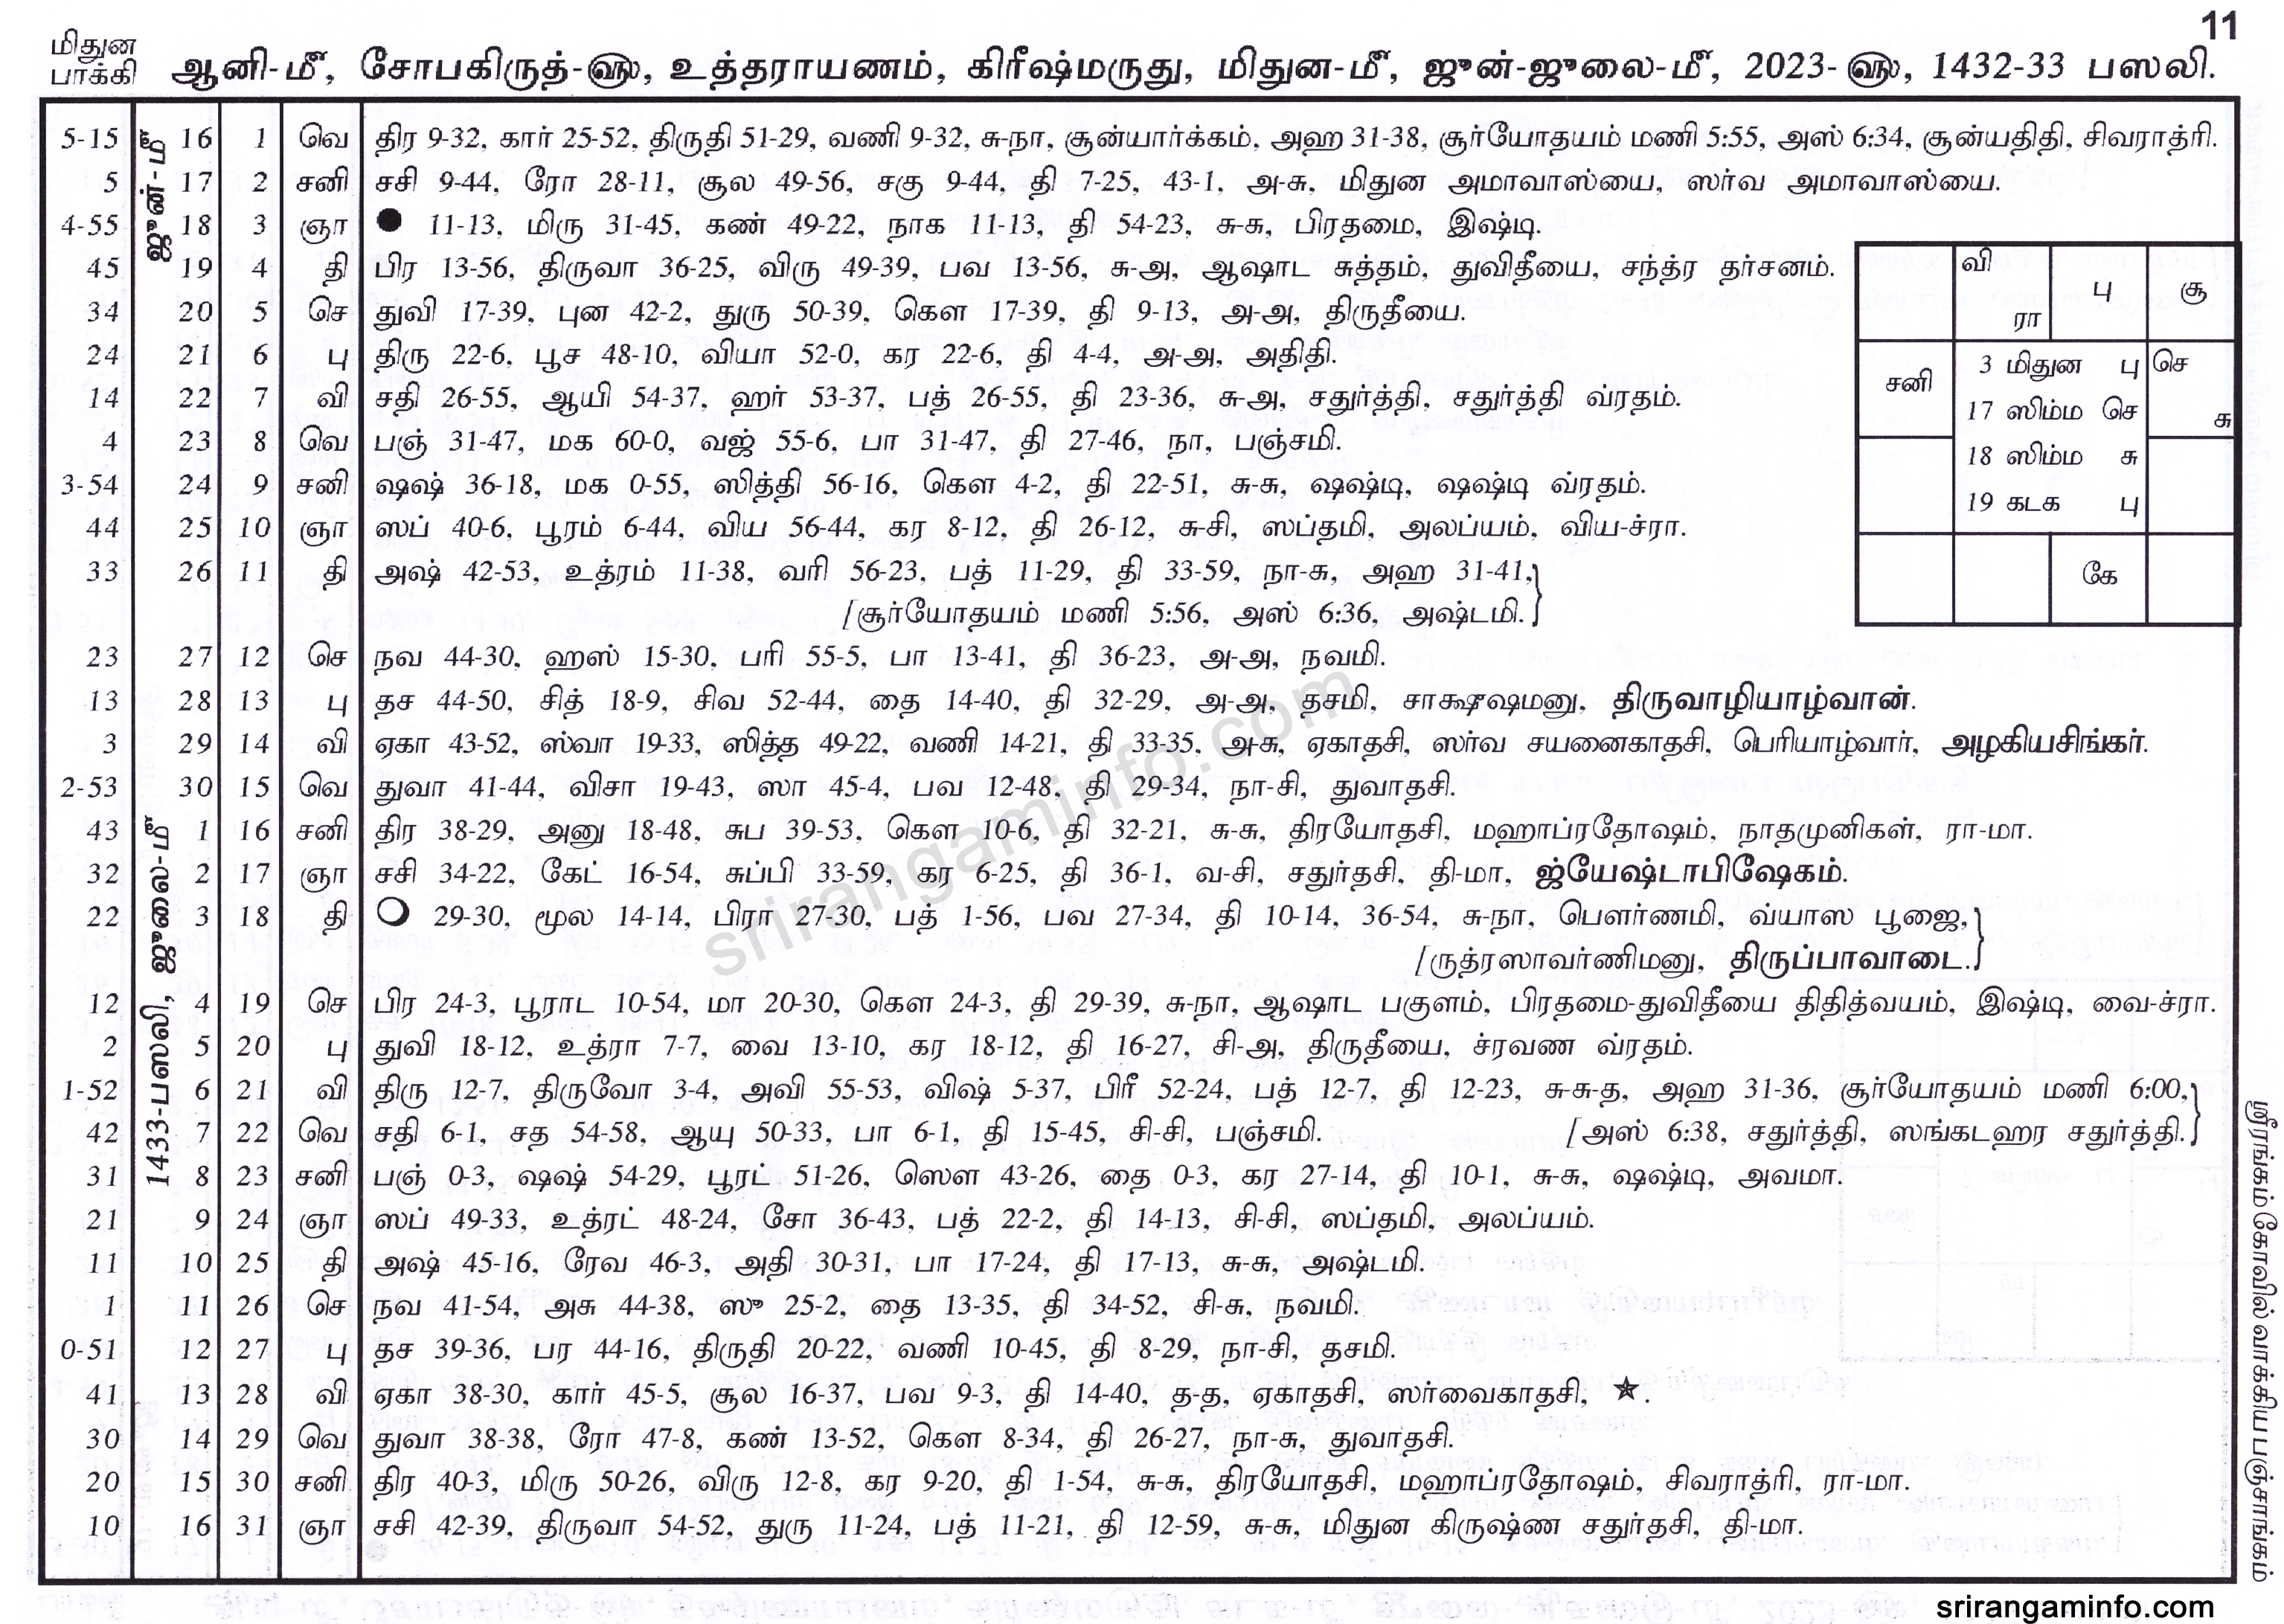 11
மிதுன
பாக்கி
ஆனி-மீ, சோபகிருத்-௵, உத்தராயணம், கிரீஷ்மருது, மிதுன-மீ, ஜுன்-ஜுலை-மீ, 2023-௵, 1432-33 பஸலி.
ஜுன்-மீ
5-15 16 1 வெ திர 9-32, கார் 25-52, திருதி 51-29, வணி 9-32, சு-நா, சூன்யார்க்கம், அஹ 31-38, சூர்யோதயம் மணி 5:55, அஸ் 6:34, சூன்யதிதி, சிவராத்ரி.
5 17 2 சனி சசி 9-44, ரோ 28-11, சூல 49-56, சகு 9-44, தி 7-25, 43-1, அ-சு, மிதுன அமாவாஸ்யை, ஸர்வ அமாவாஸ்யை.
4-55 18 3 ஞா ● 11-13, மிரு 31-45, கண் 49-22, நாக 11-13, தி 54-23, சு-சு, பிரதமை, இஷ்டி.
45 19 4 தி பிர 13-56, திருவா 36-25, விரு 49-39, பவ 13-56, சு-அ, ஆஷாட சுத்தம், துவிதீயை, சந்த்ர தர்சனம்.
34 20 5 செ துவி 17-39, புன 42-2, துரு 50-39, கௌ 17-39, தி 9-13, அ-அ, திருதீயை.
24 21 6 பு திரு 22-6, பூச 48-10, வியா 52-0, கர 22-6, தி 4-4, அ-அ, அதிதி.
14 22 7 வி சதி 26-55, ஆயி 54-37, ஹர் 53-37, பத் 26-55, தி 23-36, சு-அ, சதுர்த்தி, சதுர்த்தி வ்ரதம்.
4 23 8 வெ பஞ் 31-47, மக 60-0, வஜ் 55-6, பா 31-47, தி 27-46, நா, பஞ்சமி.
3-54 24 9 சனி ஷஷ் 36-18, மக 0-55, ஸித்தி 56-16, கௌ 4-2, தி 22-51, சு-சு, ஷஷ்டி, ஷஷ்டி வ்ரதம்.
44 25 10 ஞா ஸப் 40-6, பூரம் 6-44, விய 56-44, கர 8-12, தி 26-12, சு-சி, ஸப்தமி, அலப்யம், விய-ச்ரா.
33 26 11 தி அஷ் 42-53, உத்ரம் 11-38, வரி 56-23, பத் 11-29, தி 33-59, நா-சு, அஹ 31-41,}
[சூர்யோதயம் மணி 5:56, அஸ் 6:36, அஷ்டமி.
23 27 12 செ நவ 44-30, ஹஸ் 15-30, பரி 55-5, பா 13-41, தி 36-23, அ-அ, நவமி.
13 28 13 பு தச 44-50, சித் 18-9, சிவ 52-44, தை 14-40, தி 32-29, அ-அ, தசமி, சாக்ஷுஷமனு, திருவாழியாழ்வான்.
3 29 14 வி ஏகா 43-52, ஸ்வா 19-33, ஸித்த 49-22, வணி 14-21, தி 33-35, அ-சு, ஏகாதசி, ஸர்வ சயனைகாதசி, பெரியாழ்வார், அழகியசிங்கர்.
2-53 30 15 வெ துவா 41-44, விசா 19-43, ஸா 45-4, பவ 12-48, தி 29-34, நா-சி, துவாதசி.
1433-பஸலி, ஜுலை-மீ
43 1 16 சனி திர 38-29, அனு 18-48, சுப 39-53, கௌ 10-6, தி 32-21, சு-சு, திரயோதசி, மஹாப்ரதோஷம், நாதமுனிகள், ரா-மா.
32 2 17 ஞா சசி 34-22, கேட் 16-54, சுப்பி 33-59, கர 6-25, தி 36-1, வ-சி, சதுர்தசி, தி-மா, ஜ்யேஷ்டாபிஷேகம்.
22 3 18 தி ○ 29-30, மூல 14-14, பிரா 27-30, பத் 1-56, பவ 27-34, தி 10-14, 36-54, சு-நா, பௌர்ணமி, வ்யாஸ பூஜை,}
[ருத்ரஸாவர்ணிமனு, திருப்பாவாடை.
12 4 19 செ பிர 24-3, பூராட 10-54, மா 20-30, கௌ 24-3, தி 29-39, சு-நா, ஆஷாட பகுளம், பிரதமை-துவிதீயை திதித்வயம், இஷ்டி, வை-ச்ரா.
2 5 20 பு துவி 18-12, உத்ரா 7-7, வை 13-10, கர 18-12, தி 16-27, சி-அ, திருதீயை, ச்ரவண வ்ரதம்.
1-52 6 21 வி திரு 12-7, திருவோ 3-4, அவி 55-53, விஷ் 5-37, பிரீ 52-24, பத் 12-7, தி 12-23, சு-சு-த, அஹ 31-36, சூர்யோதயம் மணி 6:00,}
42 7 22 வெ சதி 6-1, சத 54-58, ஆயு 50-33, பா 6-1, தி 15-45, சி-சி, பஞ்சமி. [அஸ் 6:38, சதுர்த்தி, ஸங்கடஹர சதுர்த்தி.
31 8 23 சனி பஞ் 0-3, ஷஷ் 54-29, பூரட் 51-26, ஸௌ 43-26, தை 0-3, கர 27-14, தி 10-1, சு-சு, ஷஷ்டி, அவமா.
21 9 24 ஞா ஸப் 49-33, உத்ரட் 48-24, சோ 36-43, பத் 22-2, தி 14-13, சி-சி, ஸப்தமி, அலப்யம்.
11 10 25 தி அஷ் 45-16, ரேவ 46-3, அதி 30-31, பா 17-24, தி 17-13, சு-சு, அஷ்டமி.
1 11 26 செ நவ 41-54, அசு 44-38, ஸு 25-2, தை 13-35, தி 34-52, சி-சு, நவமி.
0-51 12 27 பு தச 39-36, பர 44-16, திருதி 20-22, வணி 10-45, தி 8-29, நா-சி, தசமி.
41 13 28 வி ஏகா 38-30, கார் 45-5, சூல 16-37, பவ 9-3, தி 14-40, த-த, ஏகாதசி, ஸர்வைகாதசி, ★.
30 14 29 வெ துவா 38-38, ரோ 47-8, கண் 13-52, கௌ 8-34, தி 26-27, நா-சு, துவாதசி.
20 15 30 சனி திர 40-3, மிரு 50-26, விரு 12-8, கர 9-20, தி 1-54, சு-சு, திரயோதசி, மஹாப்ரதோஷம், சிவராத்ரி, ரா-மா.
10 16 31 ஞா சசி 42-39, திருவா 54-52, துரு 11-24, பத் 11-21, தி 12-59, சு-சு, மிதுன கிருஷ்ண சதுர்தசி, தி-மா.
வி
பு சூ
ரா
3 மிதுன பு செ
சனி
17 ஸிம்ம செ
சு
18 ஸிம்ம சு
19 கடக பு
கே
ஸ்ரீரங்கம் கோவில் வாக்கிய பஞ்சாங்கம்
sriranگaminfo.com
srirangaminfo.com